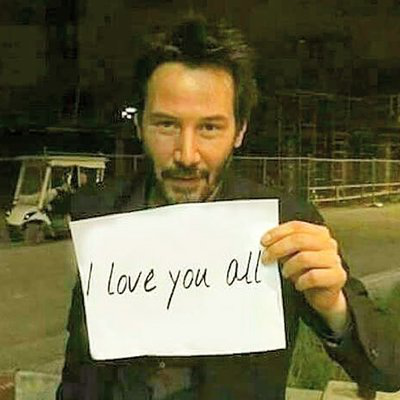 I love you all